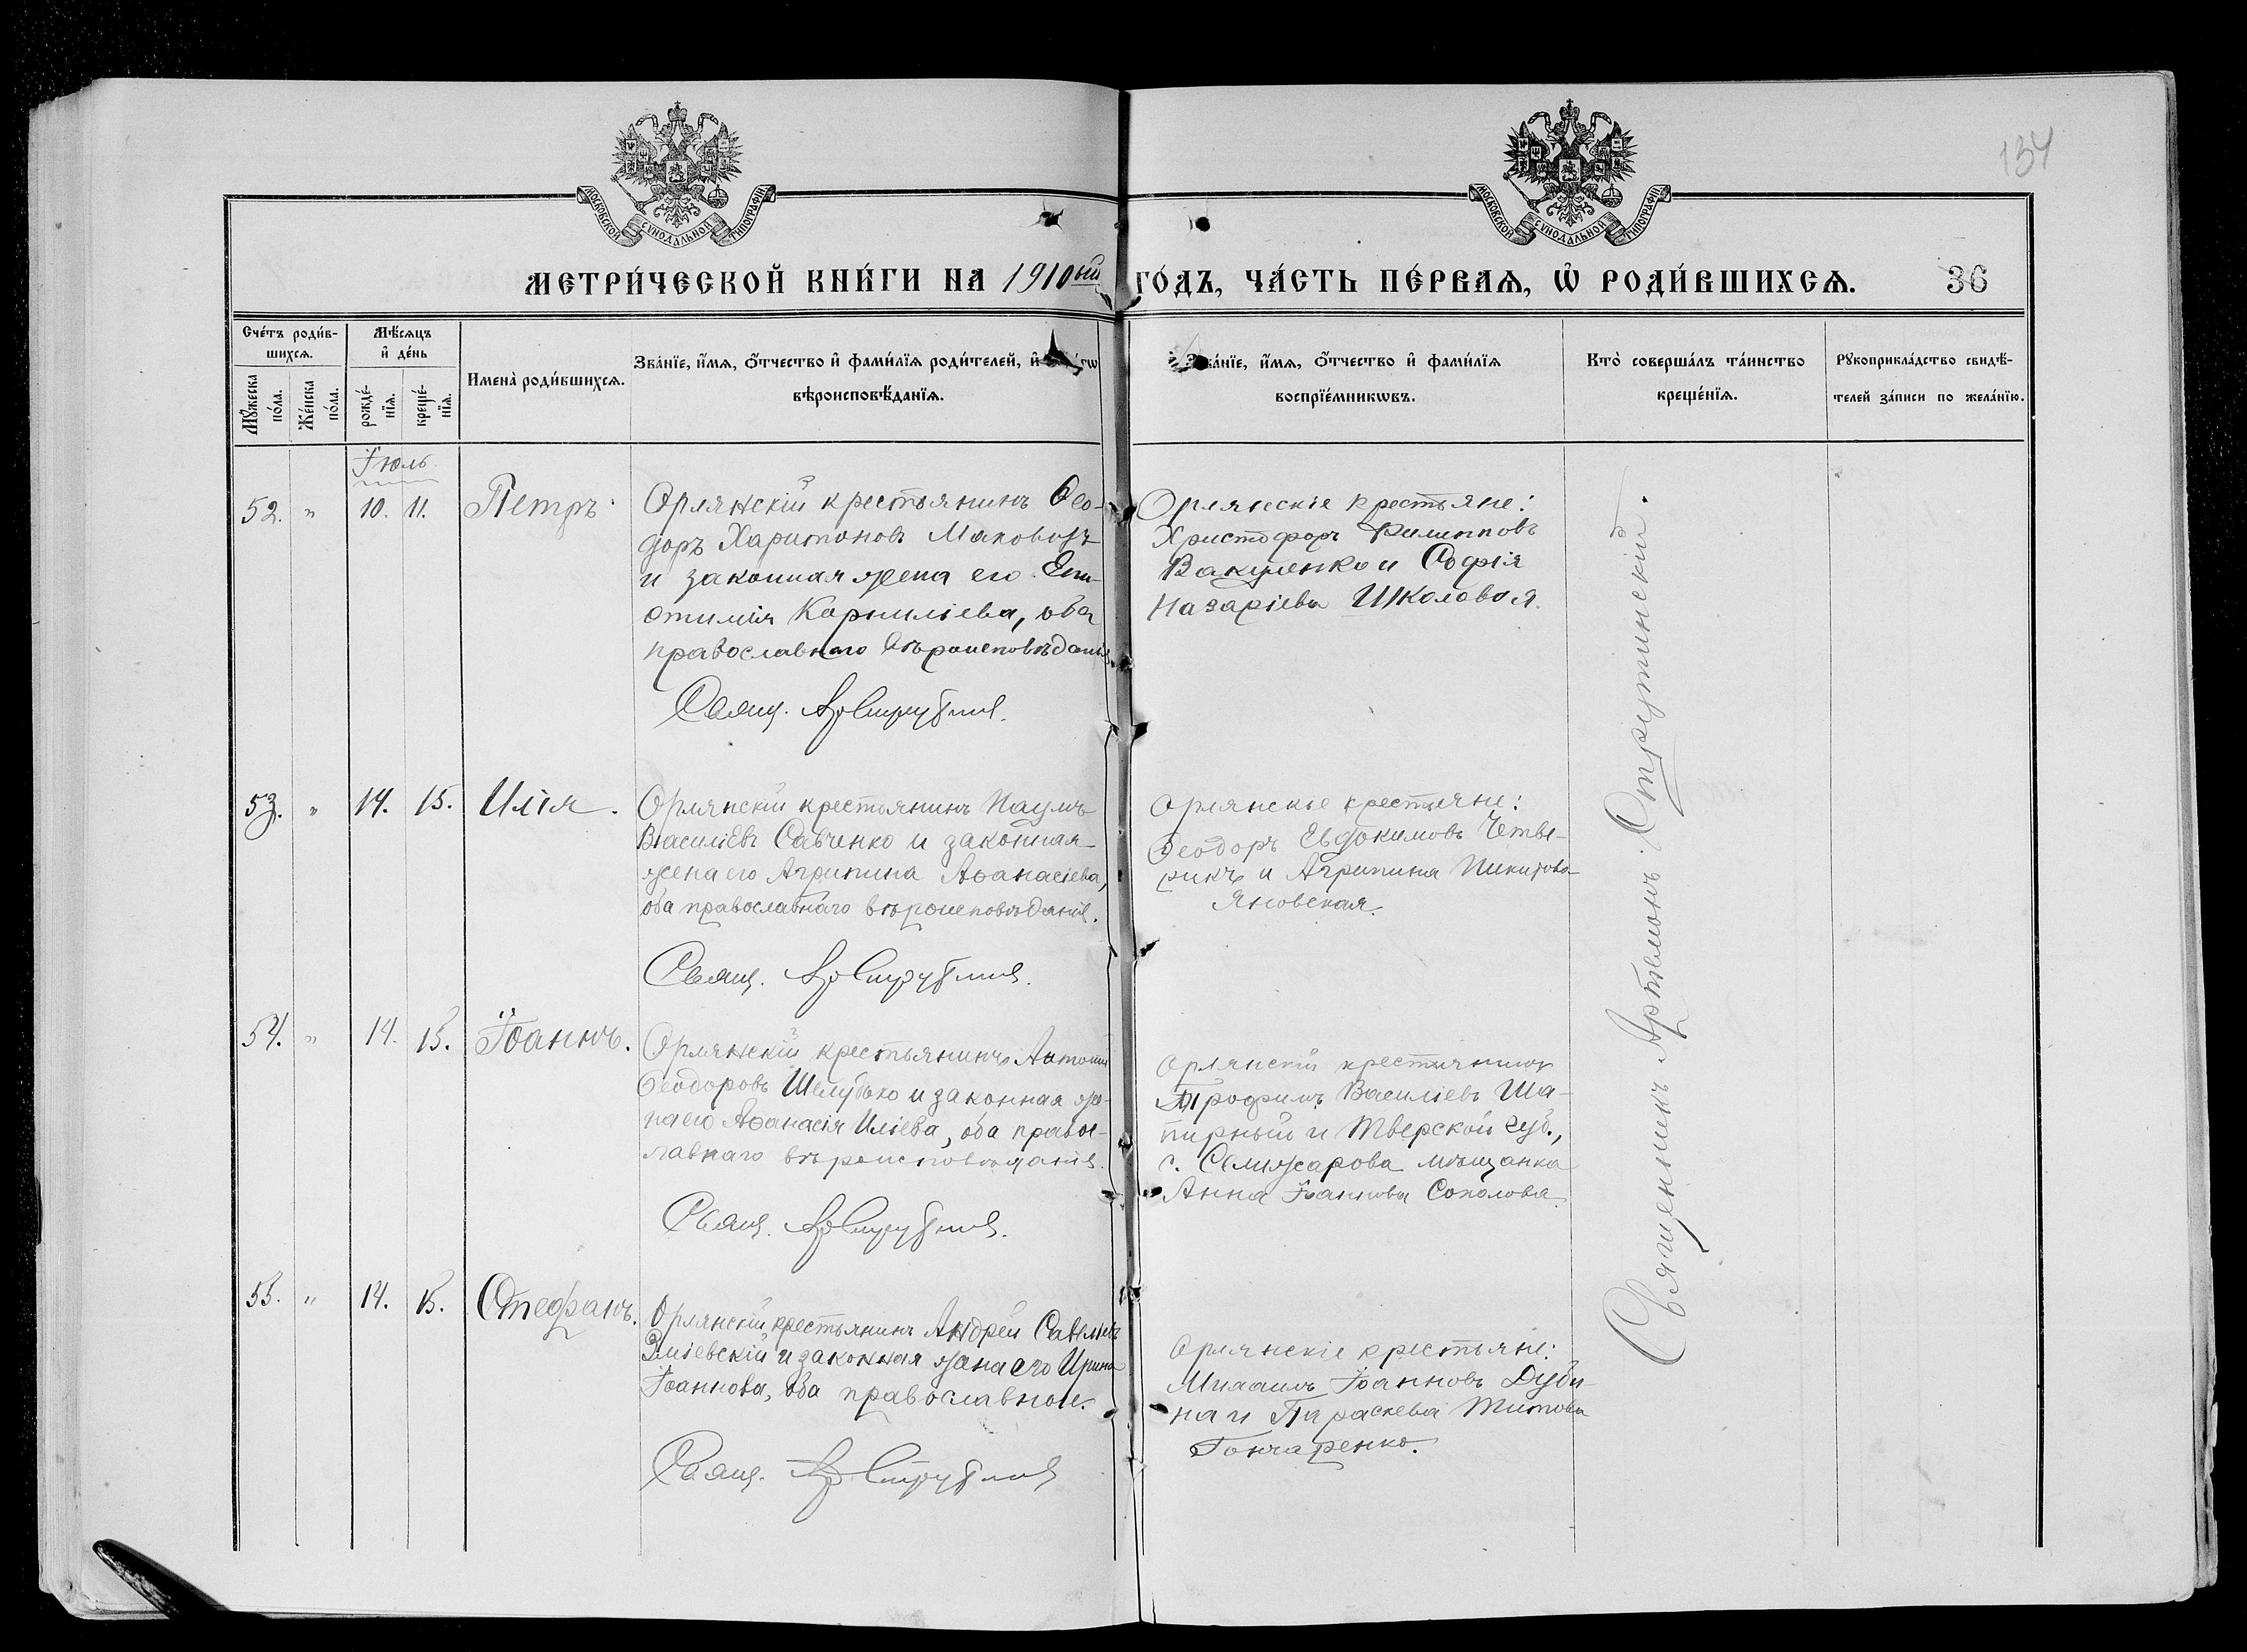 134
МОСКОВСКОЙ СѴНОДАЛЬНОЙ ТИПОГРАФІИ
МОСКОВСКОЙ СѴНОДАЛЬНОЙ ТИПОГРАФІИ
МЕТРИ́ЧЕСКОЙ КНИ́ГИ НА 1910ый ГО́ДЪ, ЧА́СТЬ ПЕ́РВАѦ, Ѡ҆ РОДИ́ВШИХСѦ. 36
Сче́тъ роди́в-
шихсѧ.
Мꙋ́жеска
по́ла.
Же́нска
по́ла.
Мѣ́сѧцъ
и҆ де́нь
рожде́-
нїѧ.
креще́-
нїѧ.
Имена̀ роди́вшихсѧ.
Зва́нїе, и҆́мѧ, ѻ҆́тчество и҆ фами́лїѧ роди́телей, и҆
вѣроисповѣ́данїѧ.
Зва́нїе, и҆́мѧ, ѻ҆́тчество и҆ фами́лїѧ
воспрїе́мникѡвъ.
Кто̀ соверша́лъ та́инство
креще́нїѧ.
Рꙋкоприкла́дство свидѣ́-
телей за́писи по жела́нїю.
Іюль.
52. " 10. 11. Петръ.
Орлянскій крестьянинъ Ѳео-
доръ Харитоновъ Маковозъ
и законная жена его Епи-
стимія Корнилієва, оба
православнаго вѣроисповѣданія
Свящ. Ар Струтинс.
Орлянскіе крестьяне:
Христофоръ Филипповъ
Вакуленко и Софія
Назаріева Школовая.
53. " 14. 15. Илія.
Орлянскій крестьянинъ Наумъ
Василіевъ Савченко и законная
жена его Агрипина Аѳанасіева,
оба православнаго вѣроисповѣданія.
Свящ. Ар Струтинс.
Орлянскіе крестьяне:
Ѳеодоръ Евдокимовъ Четве-
рикъ и Агрипина Никитова
Яновская.
54. " 14. 15. Іоаннъ.
Орлянскій крестьянинъ Антоній
Ѳеодоровъ Шелудько и законная же-
на его Аѳанасія Иліева, оба правос-
лавнаго вѣроисповѣданія.
Свящ. Ар Струтинс.
Орлянскій крестьянинъ
Трофимъ Василіевъ Ша-
тирный и Тверской губ.,
с. Селижарова мѣщанка
Анна Іоаннова Соколова.
55. " 14. 15. Стефанъ.
Орлянскій крестьянинъ Андрей Савельевъ
Зміевскій и законная жена его Ирина
Іоаннова, оба православные.
Свящ. Ар Струтинс
Орлянскіе крестьяне:
Михаилъ Іоанновъ Дуби-
на и Параскева Титова
Гончаренко.
Священникъ Артемонъ Струтинскій.